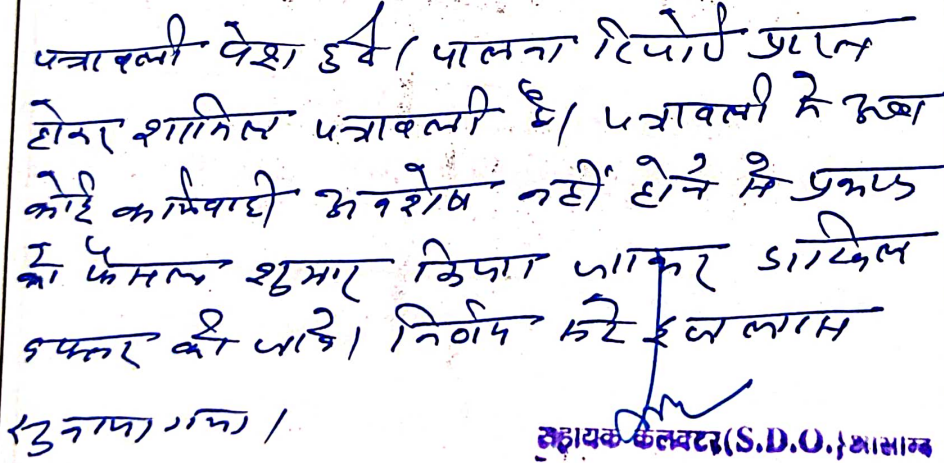 पत्रावली पेश हुई। पालना रिपोर्ट प्राप्त
होकर शामिल पत्रावली है। पत्रावली में अब
कोई कार्यवाही अवशेष नहीं होने से प्रकरण
को फैसल शुमार किया जाकर दाखिल
दफ्तर की जावे। निर्णय सरे इजलास
सुनाया गया।
सहायक कलक्टर (S.D.O.)